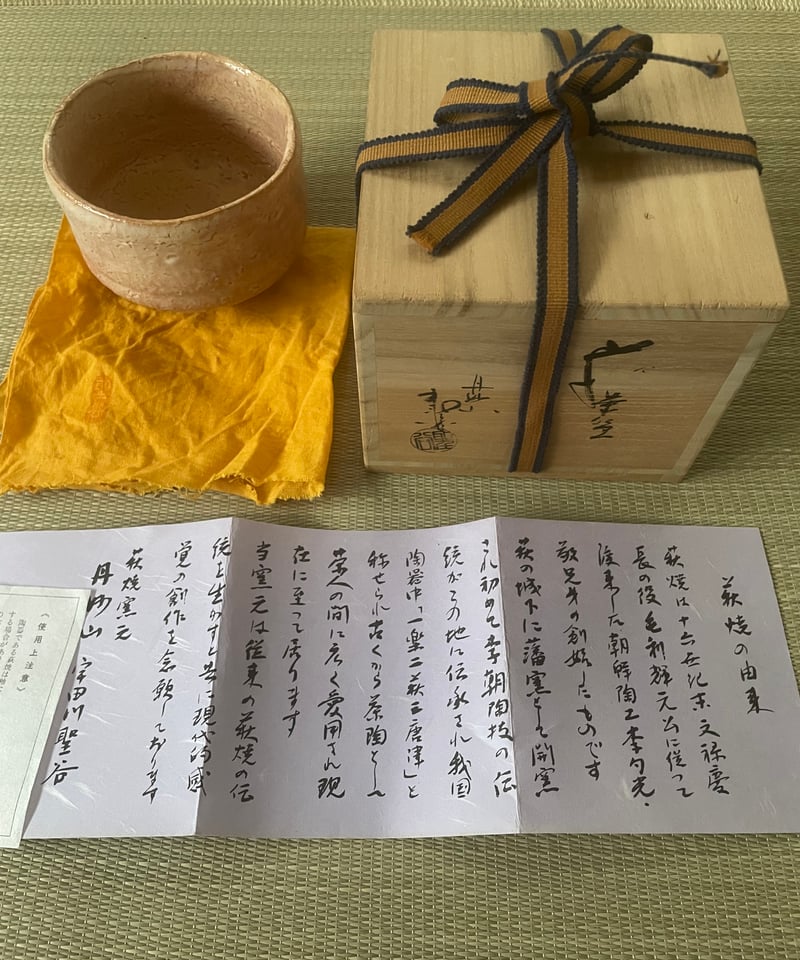 萩焼の由来
萩焼は十六世紀末文禄慶
長の役毛利輝元公に従って
渡来した朝鮮陶工李勺光、
敬兄弟の創始したものです
萩の城下に藩窯として開窯
され初めて李朝陶技の伝
統がこの地に伝承され我国
陶器中「一楽二萩三唐津」と
称せられ古くから茶陶とし
茶人の間に広く愛用され現
在に至って居ります
当窯元は従来の萩焼の伝
統を生かすと共に現代的感
覚の創作を念願しております
萩焼窯元
丹山 宇田川聖谷
《使用上注意》
陶器である萩焼は
する場合があり